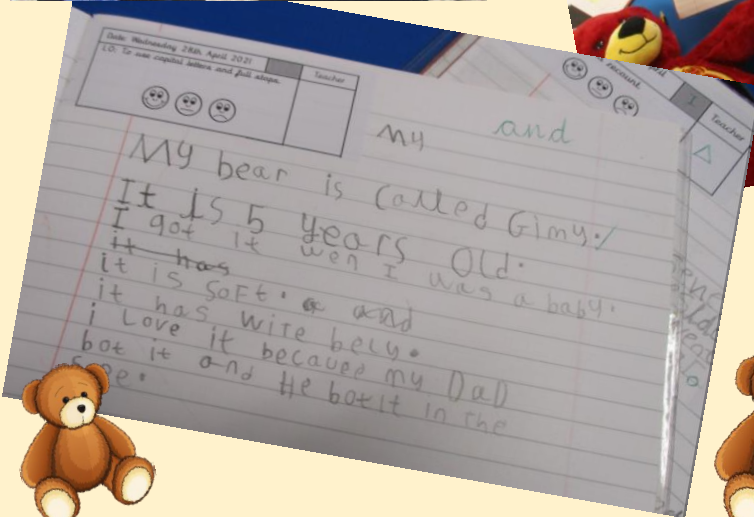 Date: Wednesday 28th April 2021
L.O: To use capital letters and full stops.
Teacher
My and
My bear is called Gimy.
It is 5 years old.
I got it wen I was a baby.
it has
it is soft. a and
it has wite bely.
i Love it becauee my DaD
bot it and He bot it in the
recount.
I
Teacher